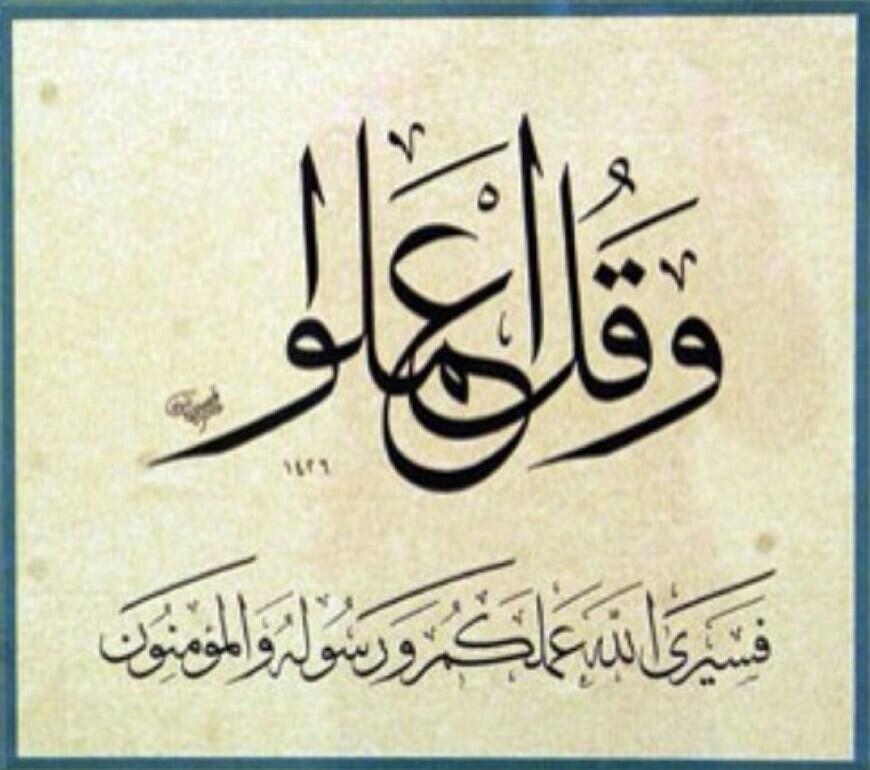 وَقُلِ اعْمَلُوا
١٤٢٦
فَسَيَرَى اللهُ عَمَلَكُمْ وَرَسُولُهُ وَالْمُؤْمِنُونَ